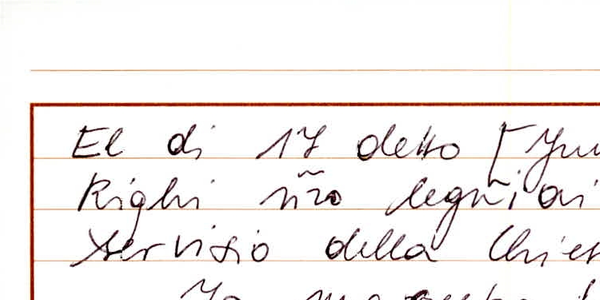 El di 17 detto [
Righi nr̃o legñai
servisio della Chies